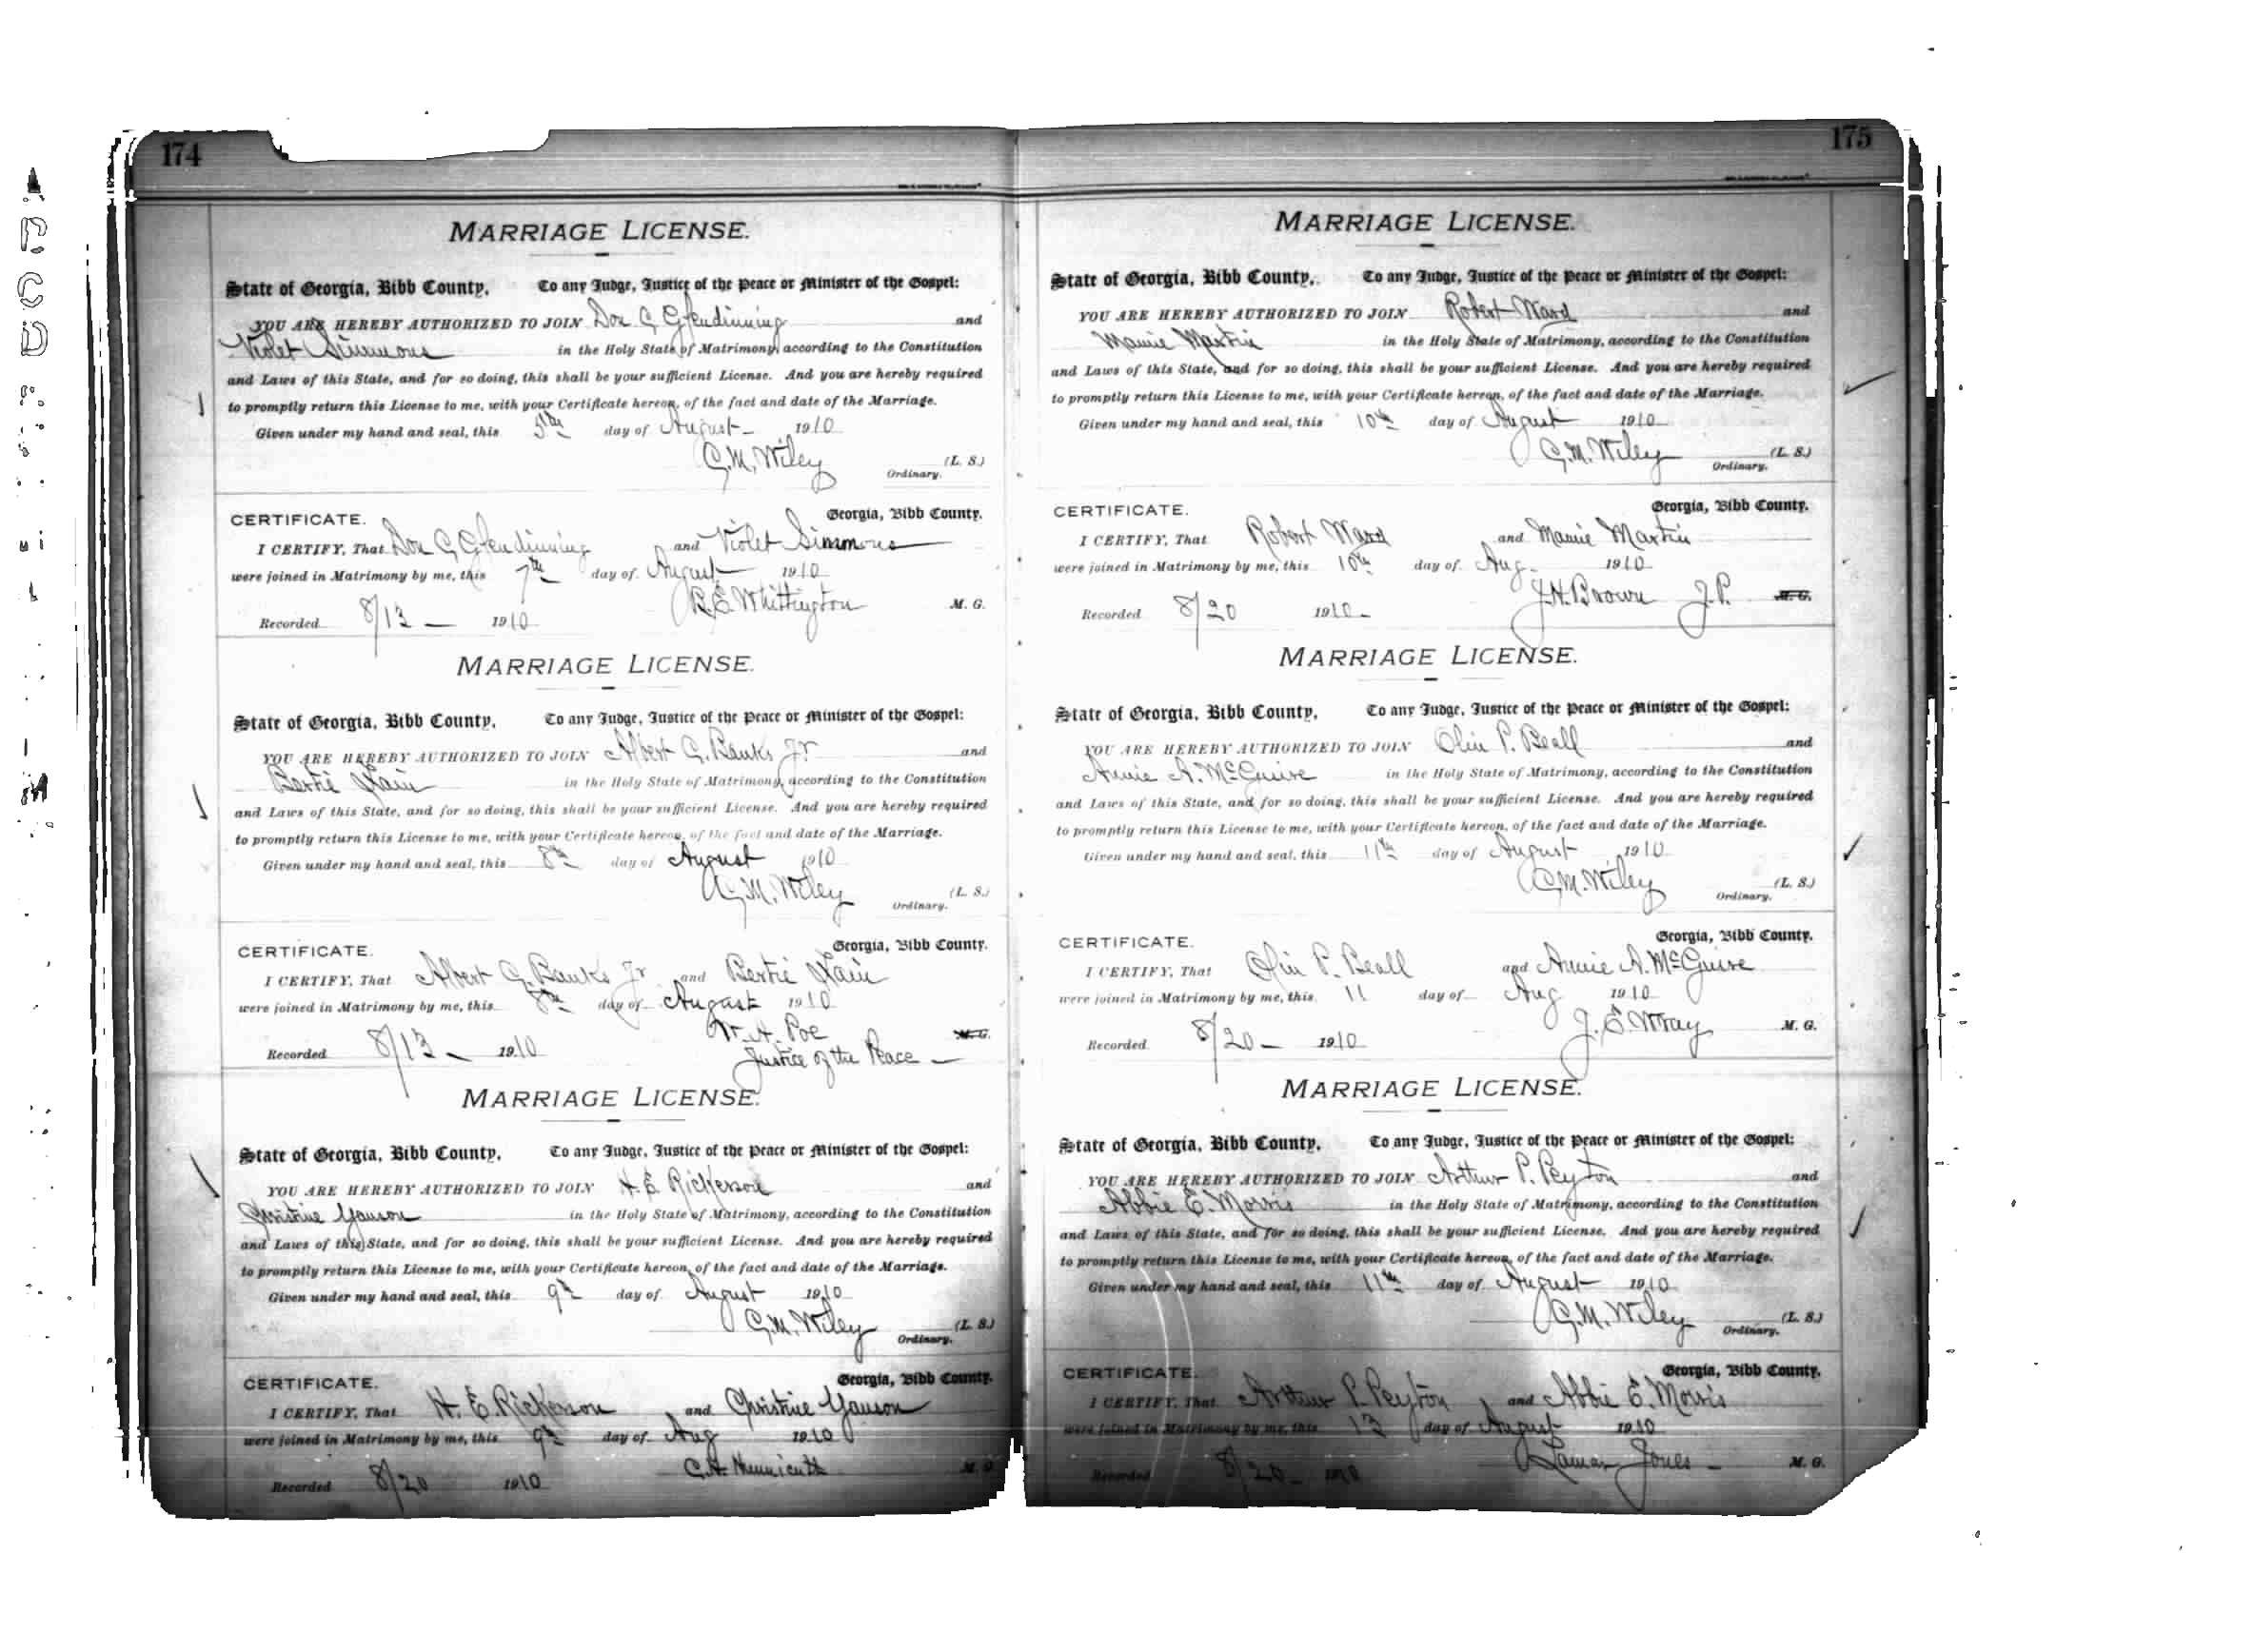 174
MARRIAGE LICENSE.
State of Georgia, Bibb County. To any Judge, Justice of the Peace or Minister of the Gospel:
YOU ARE HEREBY AUTHORIZED TO JOIN Don G Glendinning and
Violet Simmons in the Holy State of Matrimony, according to the Constitution
and Laws of this State, and for so doing, this shall be your sufficient License. And you are hereby required
to promptly return this License to me, with your Certificate hereon, of the fact and date of the Marriage.
Given under my hand and seal, this 5th day of August 1910
C.M. Wiley (L. S.)
Ordinary.
CERTIFICATE. Georgia, Bibb County.
I CERTIFY, That Don G Glendinning and Violet Simmons
were joined in Matrimony by me, this 7th day of August 1910
R.E. Whittington M. G.
Recorded 8/13 1910
MARRIAGE LICENSE.
State of Georgia, Bibb County. To any Judge, Justice of the Peace or Minister of the Gospel:
YOU ARE HEREBY AUTHORIZED TO JOIN Albert G. Banks Jr and
Bertie Lain in the Holy State of Matrimony, according to the Constitution
and Laws of this State, and for so doing, this shall be your sufficient License. And you are hereby required
to promptly return this License to me, with your Certificate hereon, of the fact and date of the Marriage.
Given under my hand and seal, this 8th day of August 1910
C.M. Wiley (L. S.)
Ordinary.
CERTIFICATE. Georgia, Bibb County.
I CERTIFY, That Albert G. Banks Jr and Bertie Lain
were joined in Matrimony by me, this 8th day of August 1910
W. A. Poe M. G.
Recorded 8/13 1910 Justice of the Peace
MARRIAGE LICENSE.
State of Georgia, Bibb County. To any Judge, Justice of the Peace or Minister of the Gospel:
YOU ARE HEREBY AUTHORIZED TO JOIN H. E Rickerson and
Christine Yauson in the Holy State of Matrimony, according to the Constitution
and Laws of this State, and for so doing, this shall be your sufficient License. And you are hereby required
to promptly return this License to me, with your Certificate hereon, of the fact and date of the Marriage.
Given under my hand and seal, this 9th day of August 1910
C.M. Wiley (L. S.)
Ordinary.
CERTIFICATE. Georgia, Bibb County.
I CERTIFY, That H. E. Rickerson and Christine Yauson
were joined in Matrimony by me, this 9th day of Aug 1910
C.H. Hunnicutt M. G.
Recorded 8/20 1910
175
MARRIAGE LICENSE.
State of Georgia, Bibb County. To any Judge, Justice of the Peace or Minister of the Gospel:
YOU ARE HEREBY AUTHORIZED TO JOIN Robert Ward and
Mamie Martin in the Holy State of Matrimony, according to the Constitution
and Laws of this State, and for so doing, this shall be your sufficient License. And you are hereby required
to promptly return this License to me, with your Certificate hereon, of the fact and date of the Marriage.
Given under my hand and seal, this 10th day of August 1910
C.M. Wiley (L. S.)
Ordinary.
CERTIFICATE. Georgia, Bibb County.
I CERTIFY, That Robert Ward and Mamie Martin
were joined in Matrimony by me, this 10th day of Aug. 1910
J.H. Brown J.P. M. G.
Recorded 8/20 1910
MARRIAGE LICENSE.
State of Georgia, Bibb County. To any Judge, Justice of the Peace or Minister of the Gospel:
YOU ARE HEREBY AUTHORIZED TO JOIN Olin P. Beall and
Annie A. McGuire in the Holy State of Matrimony, according to the Constitution
and Laws of this State, and for so doing, this shall be your sufficient License. And you are hereby required
to promptly return this License to me, with your Certificate hereon, of the fact and date of the Marriage.
Given under my hand and seal, this 11th day of August 1910
C.M. Wiley (L. S.)
Ordinary.
CERTIFICATE. Georgia, Bibb County.
I CERTIFY, That Olin P. Beall and Annie A. McGuire
were joined in Matrimony by me, this 11 day of Aug 1910
J. E. Wray M. G.
Recorded 8/20 1910
MARRIAGE LICENSE.
State of Georgia, Bibb County. To any Judge, Justice of the Peace or Minister of the Gospel:
YOU ARE HEREBY AUTHORIZED TO JOIN Arthur P. Peyton and
Abbie E. Morris in the Holy State of Matrimony, according to the Constitution
and Laws of this State, and for so doing, this shall be your sufficient License. And you are hereby required
to promptly return this License to me, with your Certificate hereon, of the fact and date of the Marriage.
Given under my hand and seal, this 11th day of August 1910
C.M. Wiley (L. S.)
Ordinary.
CERTIFICATE. Georgia, Bibb County.
I CERTIFY, That Arthur P. Peyton and Abbie E. Morris
were joined in Matrimony by me, this 13 day of August 1910
Lamar Jones M. G.
Recorded 8/20 1910